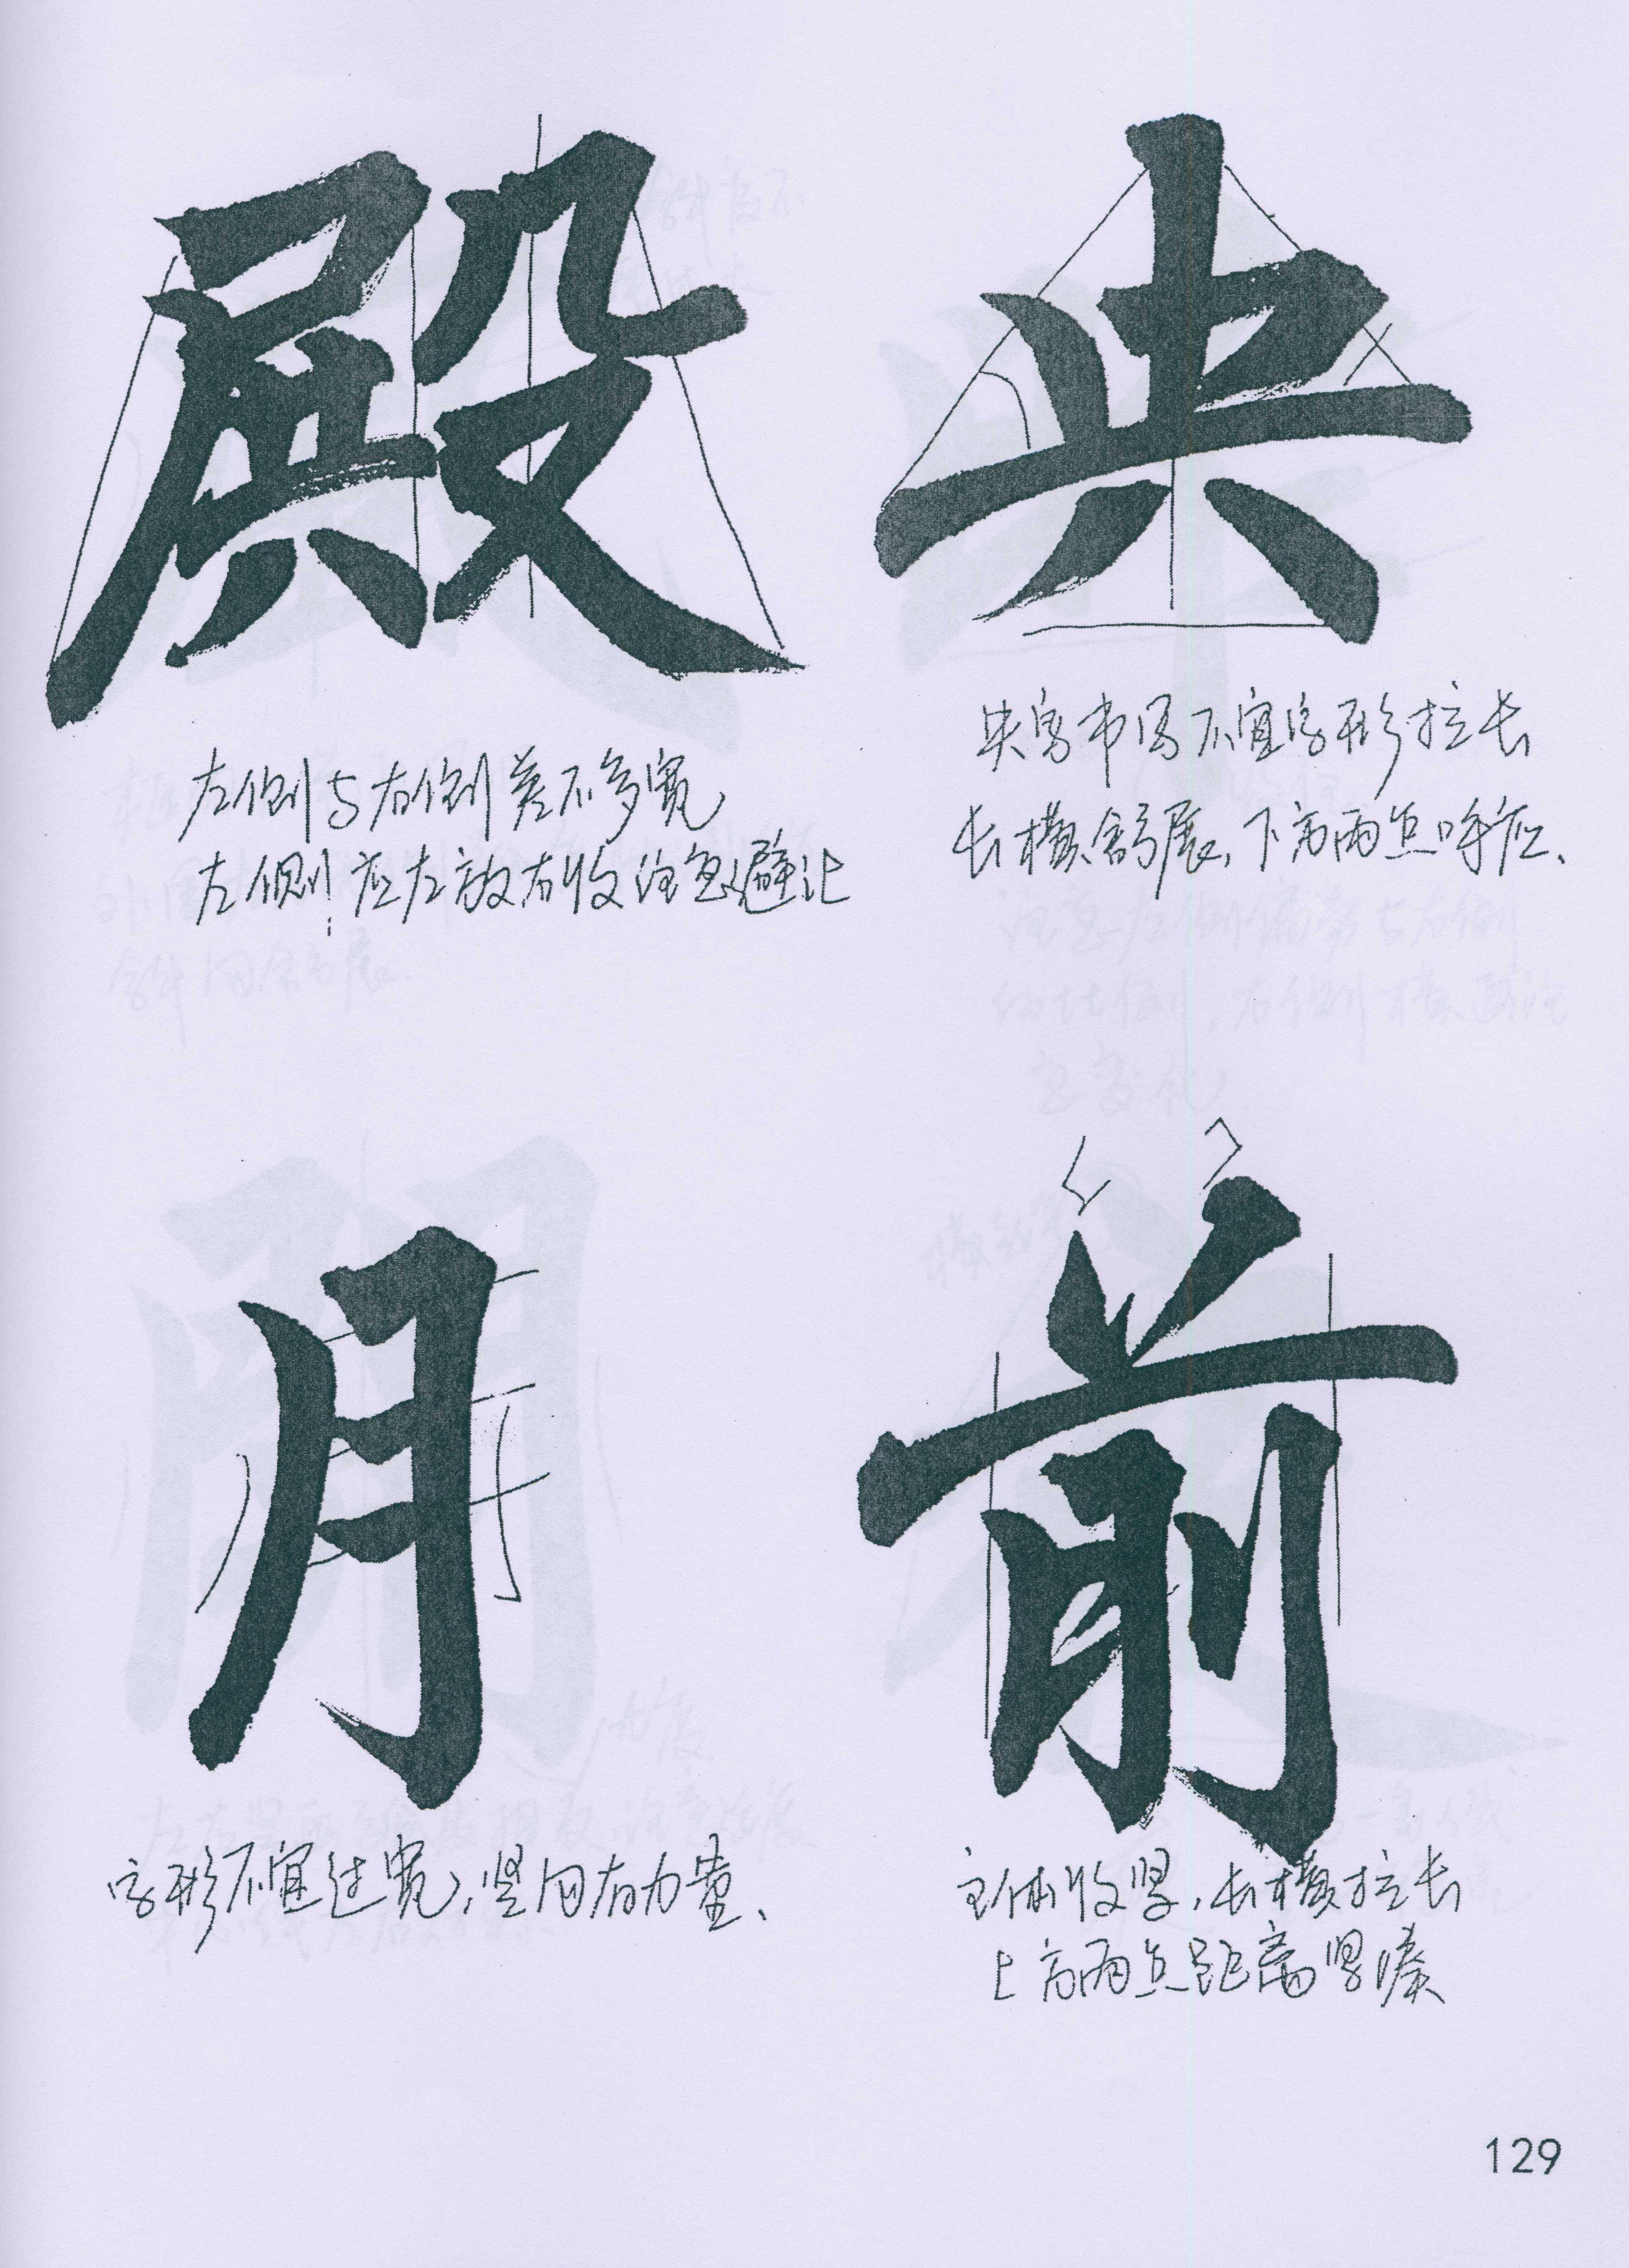 殿
左侧与右侧差不多宽,
左侧应左放右收注意避让
央
央字书写不宜字形拉长
长横舒展,下方两点呼应、
月
字形不宜过宽,竖向有力量、
前
主体收紧,长横拉长
上方两点距离紧凑
129